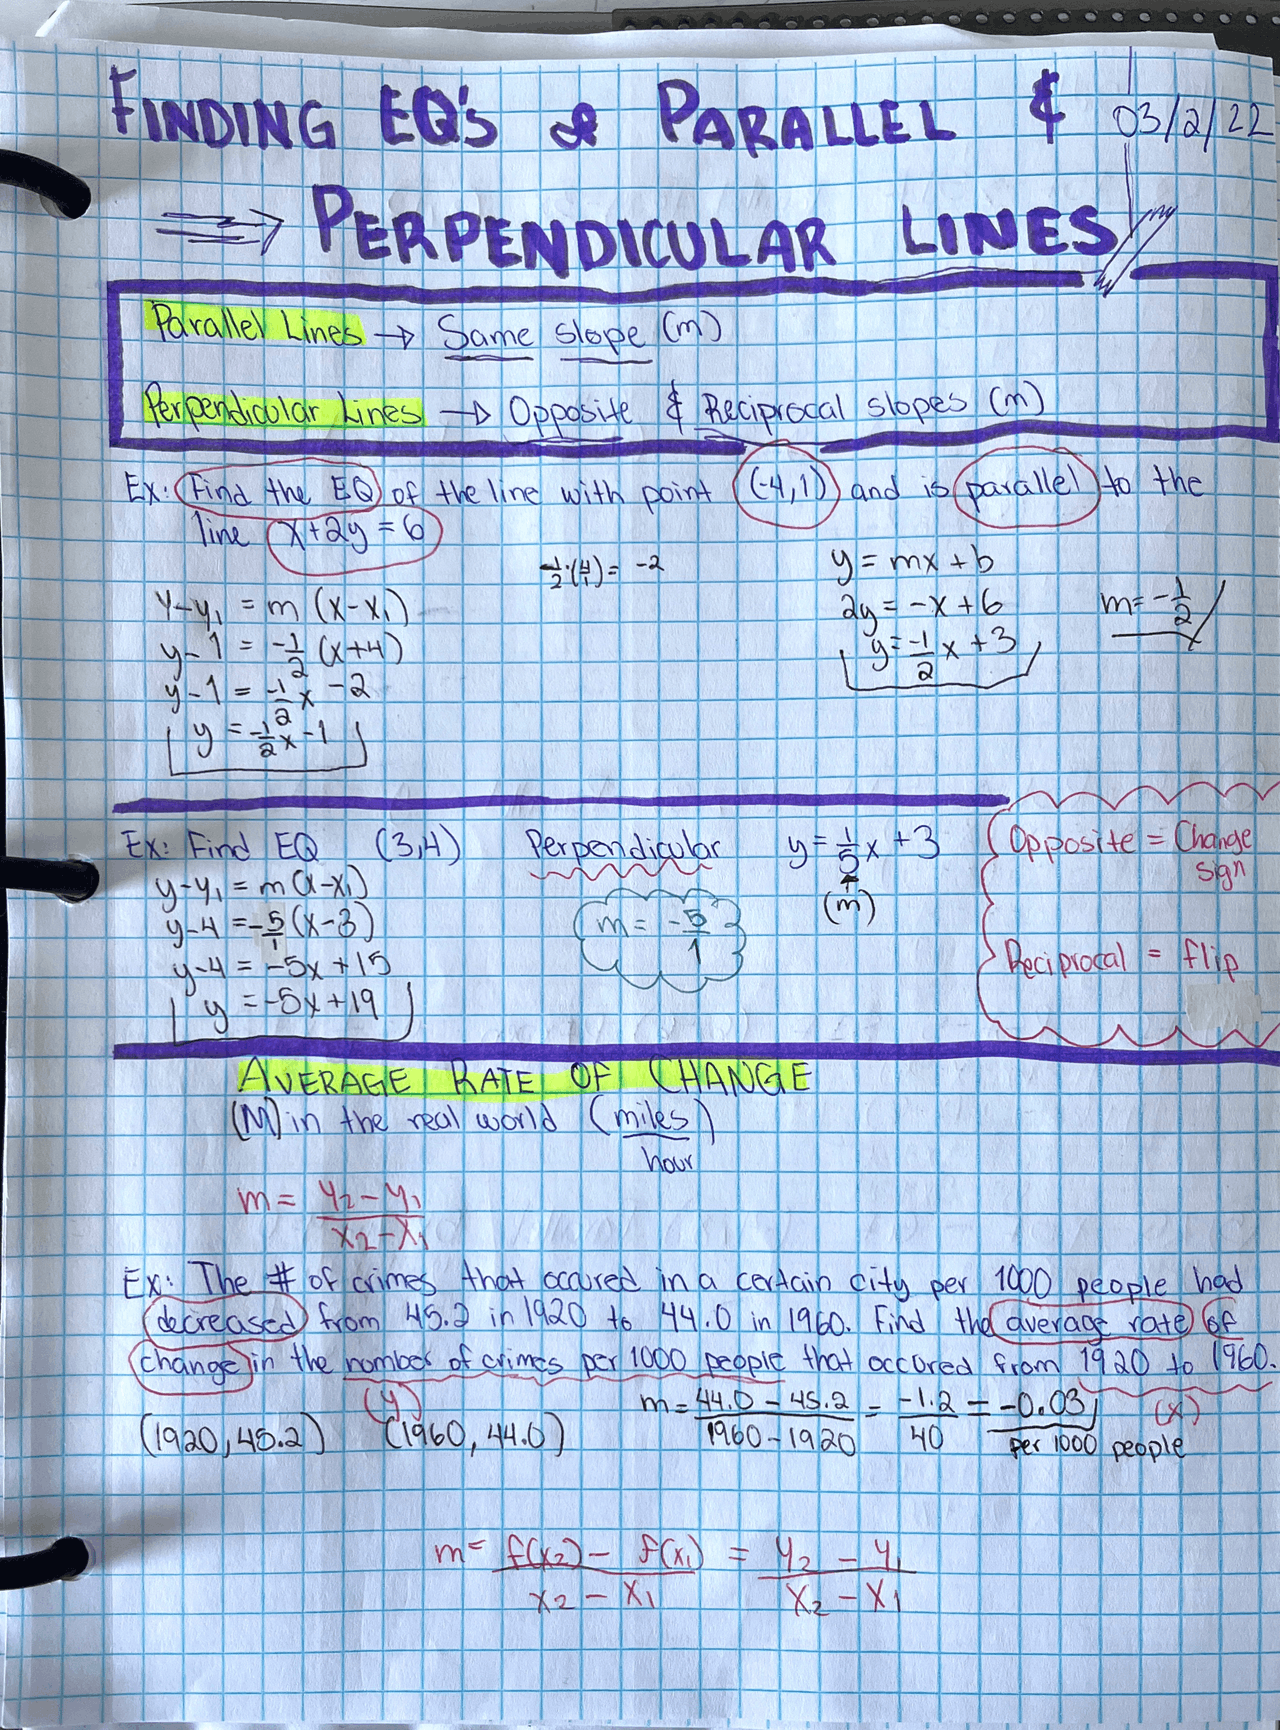 FINDING EQ's of PARALLEL &
03/2/22
⇒ PERPENDICULAR LINES
Parallel Lines → Same slope (m)
Perpendicular Lines → Opposite & Reciprocal slopes (m)
Ex: Find the EQ of the line with point (-4,1) and is parallel to the
line x+2y=6
-1/2·(4/1)= -2
y = mx + b
2y = -x + 6
m = -1/2
y = -1/2 x + 3
y-y₁ = m (x-x₁)
y-1 = -1/2 (x+4)
y-1 = -1/2 x -2
y = -1/2 x -1
Ex: Find EQ (3,4) Perpendicular y = 1/5 x + 3
(m)
y-y₁ = m(x-x₁)
y-4 = -5/1 (x-3)
y-4 = -5x +15
y = -5x+19
m = -5/1
Opposite = Change
sign
Reciprocal = flip
AVERAGE RATE OF CHANGE
(M) in the real world (miles/hour)
m = y₂-y₁ / x₂-x₁
Ex: The # of crimes that occured in a certain city per 1000 people had
decreased from 45.2 in 1920 to 44.0 in 1960. Find the average rate of
change in the number of crimes per 1000 people that occured from 1920 to 1960.
(y)
(x)
(1920, 45.2) (1960, 44.0)
m = 44.0 - 45.2 / 1960 - 1920 = -1.2 / 40 = -0.03 / per 1000 people
m = f(x₂) - f(x₁) / x₂ - x₁ = y₂ - y₁ / x₂ - x₁